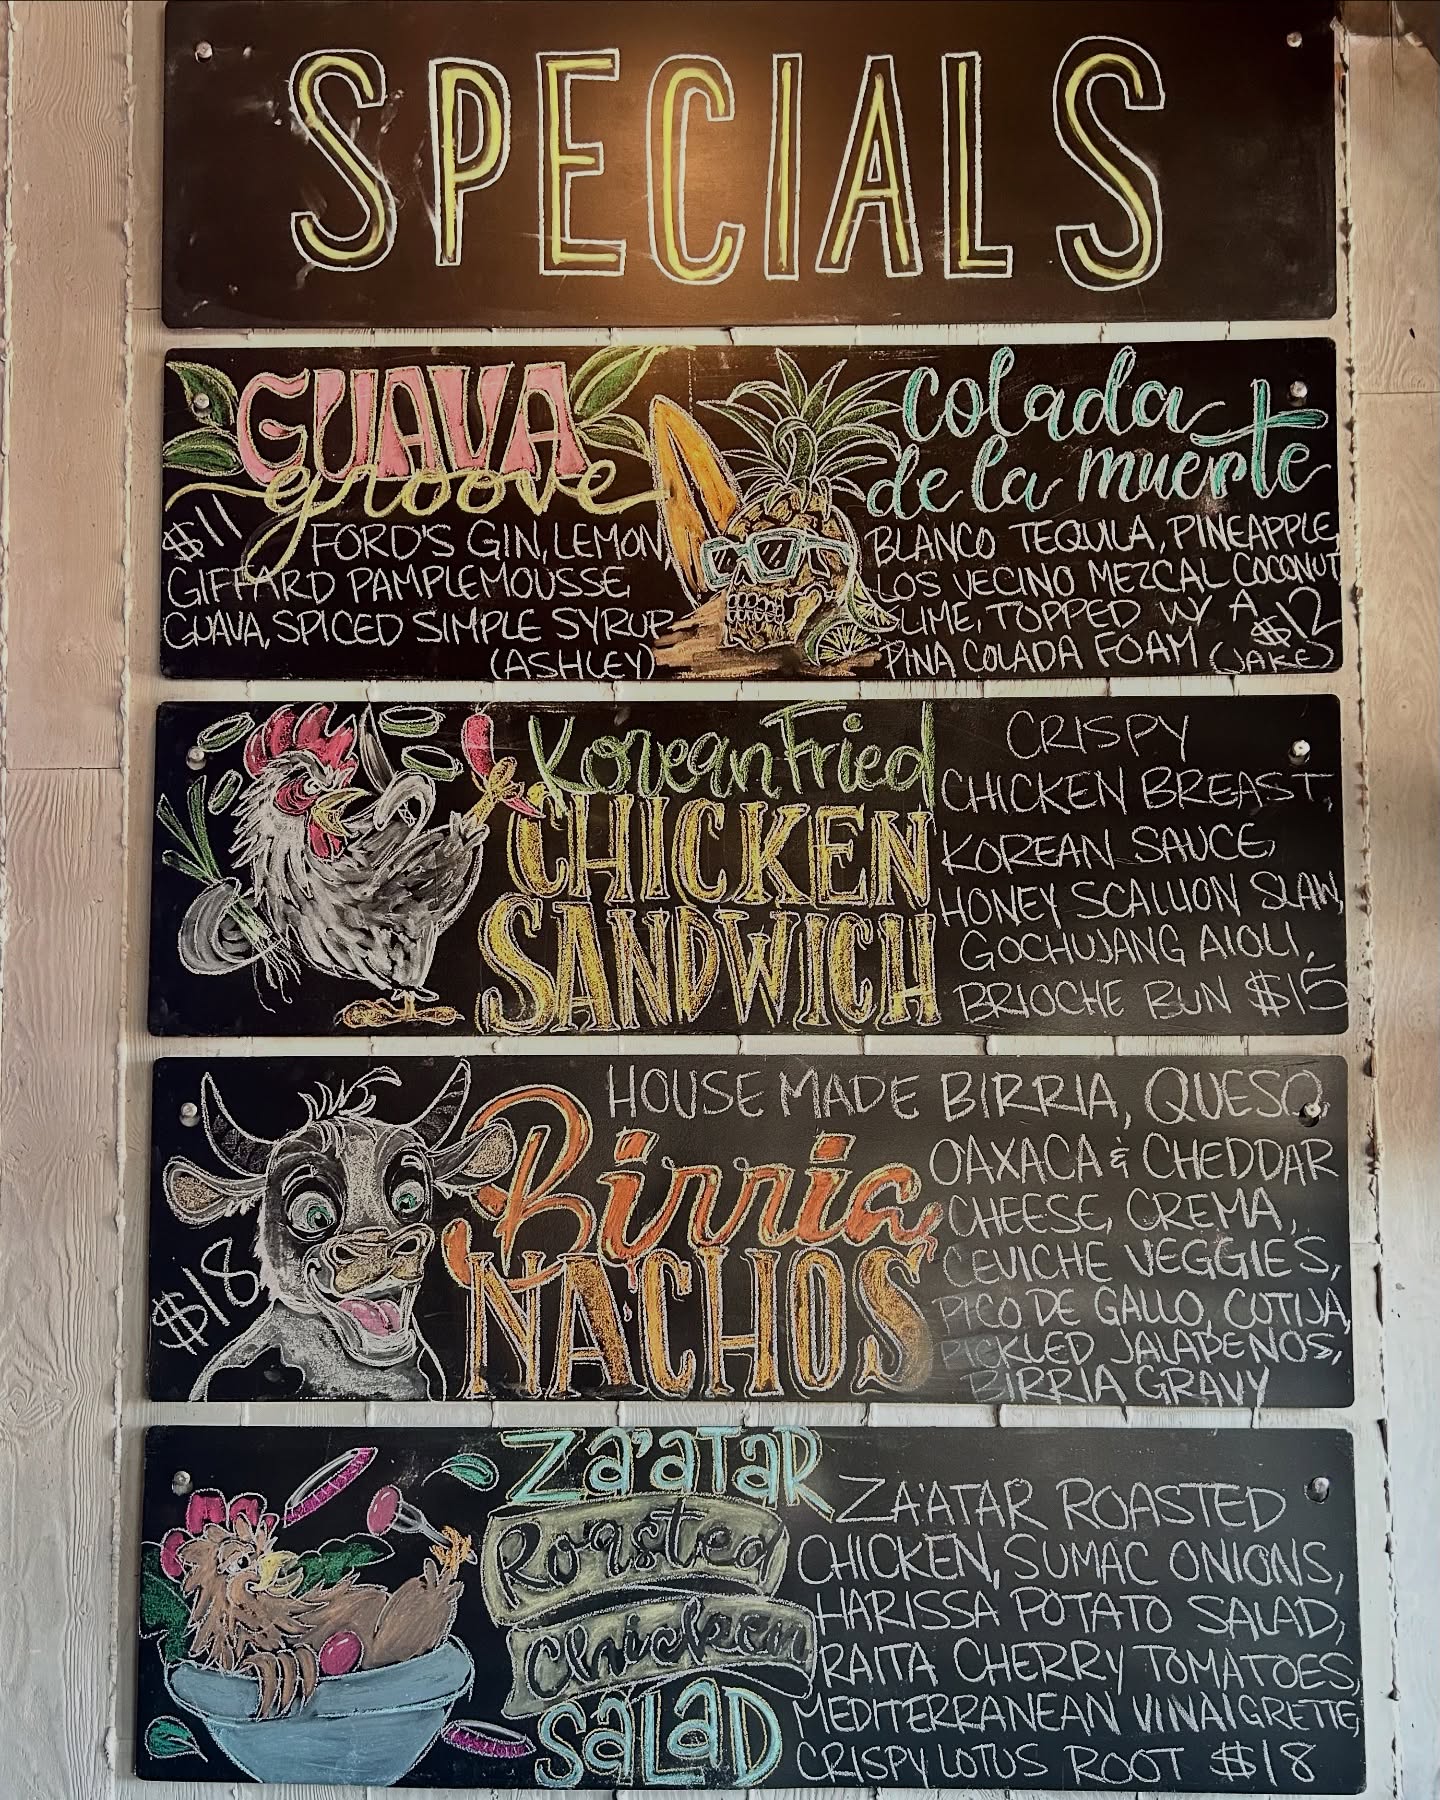 SPECIALS
GUAVA
groove
$11 FORD'S GIN, LEMON,
GIFFARD PAMPLEMOUSSE
GUAVA, SPICED SIMPLE SYRUP
(ASHLEY)
colada
de la muerte
BLANCO TEQUILA, PINEAPPLE,
LOS VECINO MEZCAL COCONUT
LIME, TOPPED W/ A $12
PINA COLADA FOAM (JAKE)
Korean Fried
CHICKEN
SANDWICH
CRISPY
CHICKEN BREAST,
KOREAN SAUCE,
HONEY SCALLION SLAW,
GOCHUJANG AIOLI,
BRIOCHE BUN $15
$18
Birria
NACHOS
HOUSE MADE BIRRIA, QUESO,
OAXACA & CHEDDAR
CHEESE, CREMA,
CEVICHE VEGGIES,
PICO DE GALLO, COTIJA,
PICKLED JALAPENOS,
BIRRIA GRAVY
ZA'ATAR
Roasted
Chicken
SALAD
ZA'ATAR ROASTED
CHICKEN, SUMAC ONIONS,
HARISSA POTATO SALAD,
RAITA CHERRY TOMATOES,
MEDITERRANEAN VINAIGRETTE,
CRISPY LOTUS ROOT $18